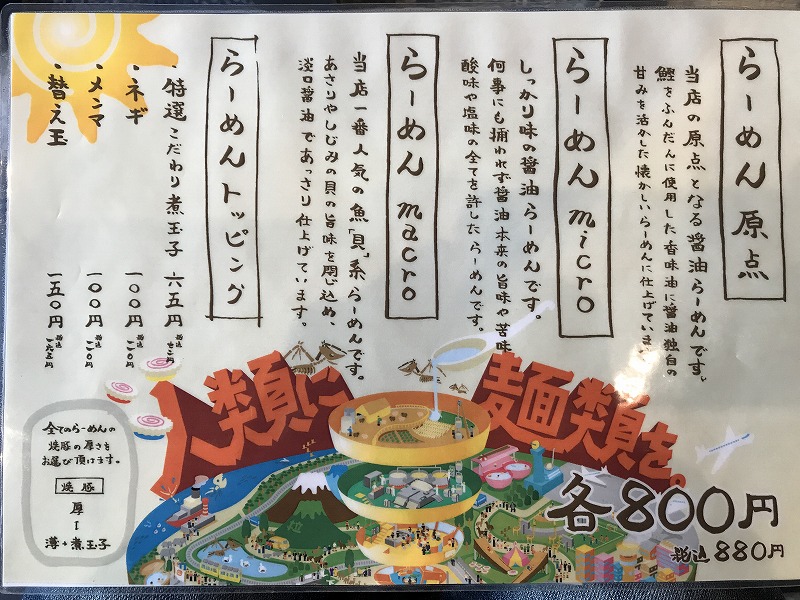 らーめん 原点
当店の原点となる醤油らーめんです。
鰹をふんだんに使用した香味油に醤油独自の
甘みを活かした懐かしいらーめんに仕上げています。
らーめん micro
しっかり味の醤油らーめんです。
何事にも捕われず醤油本来の旨味や苦味
酸味や塩味の全てを許したらーめんです。
らーめん macro
当店一番人気の魚「貝」系らーめんです。
あさりやしじみの貝の旨味を閉じ込め、
淡口醤油であっさり仕上げています。
らーめんトッピング
・特選こだわり煮玉子 六五円 税込 七二円
・ネギ 一〇〇円 税込 一一〇円
・メンマ 一〇〇円 税込 一一〇円
・替え玉 一五〇円 税込 一六五円
全てのらーめんの
焼豚の厚さを
お選び頂けます。
焼豚
厚
薄+煮玉子
人類に
麺類を。
各800円
税込880円